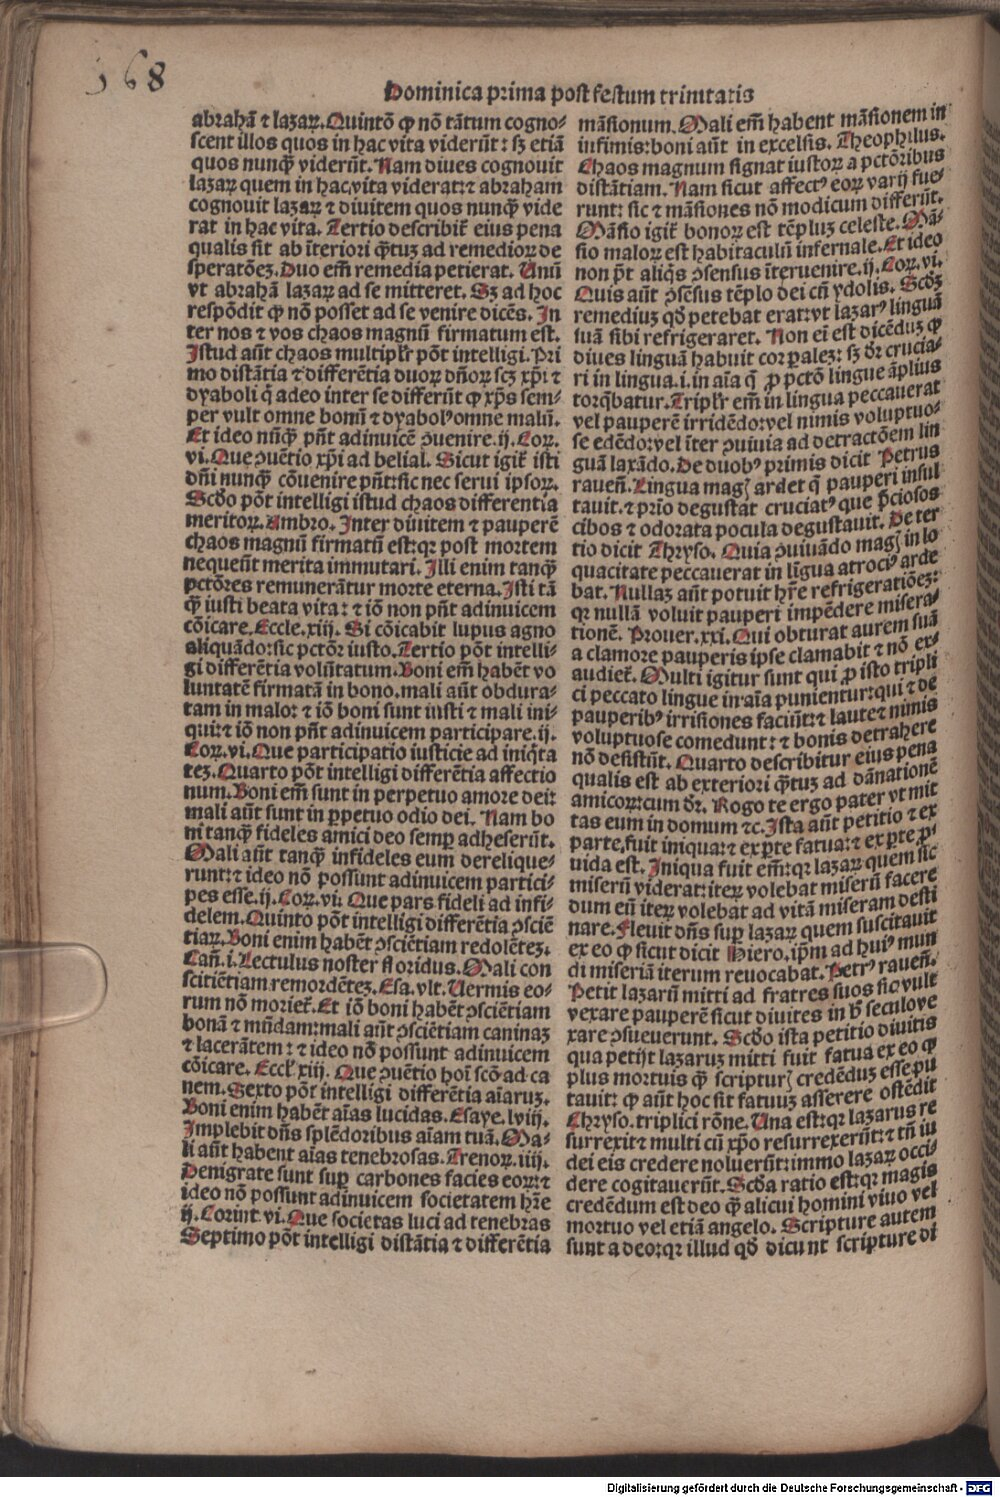 368
Dominica prima post festum trinitatis
abrahã ⁊ lazaꝝ. Quintõ ꝙ nõ tãtum cogno⸗
scent illos quos in hac vita viderũt: sꝫ etiã
quos nunꝙ̃ viderũt. Nam diues cognouit
lazaꝝ quem in hac vita viderat: ⁊ abraham
cognouit lazaꝝ ⁊ diuitem quos nunꝙ̃ vide
rat in hac vita. Tertio describit᷑ eius pena
qualis sit ab ĩteriori ꝙ̃tuꝫ ad remedioꝝ de
speratõeꝫ. Duo em̃ remedia petierat. Unũ
vt abrahã lazaꝝ ad se mitteret. Sꝫ ad hoc
respõdit ꝙ nõ posset ad se venire dicẽs. In
ter nos ⁊ vos chaos magnũ firmatum est.
Istud aũt chaos multiplr̃ põt intelligi. Pri
mo distãtia ⁊ differẽtia duoꝝ dñoꝝ scꝫ xp̃i ⁊
dyaboli q̃ adeo inter se differũt ꝙ xp̃s sem⸗
per vult omne bonũ ⁊ dyabolꝰ omne malũ.
Et ideo nũꝙ̃ pñt adinuicẽ ꝯuenire. ij. Coꝝ.
vi. Que ꝯuẽtio xp̃i ad belial. Sicut igit᷑ isti
dñi nunꝙ̃ cõuenire pñt: sic nec serui ipsoꝝ.
Scďo põt intelligi istud chaos differentia
meritoꝝ. Ambro. Inter diuitem ⁊ pauperẽ
chaos magnũ firmatũ est: qꝛ post mortem
nequeũt merita immutari. Illi enim tanꝙ̃
pctõres remunerãtur morte eterna. Isti tã
ꝙ̃ iusti beata vita: ⁊ iõ non pñt adinuicem
cõicare. Eccle. xiij. Si cõicabit lupus agno
aliquãdo: sic pctõr iusto. Tertio põt intelli⸗
gi differẽtia volũtatum. Boni em̃ habẽt vo
luntatẽ firmatã in bono. mali aũt obdura⸗
tam in malo: ⁊ iõ boni sunt iusti ⁊ mali ini⸗
qui: ⁊ iõ non pñt adinuicem participare. ij.
Coꝝ. vi. Que participatio iusticie ad iniq̃ta
teꝫ. Quarto põt intelligi differẽtia affectio
num. Boni em̃ sunt in perpetuo amore dei:
mali aũt sunt in ꝑpetuo odio dei. Nam bo
ni tanꝙ̃ fideles amici deo semꝑ adheserũt.
Mali aũt tanꝙ̃ infideles eum derelique⸗
runt: ⁊ ideo nõ possunt adinuicem partici⸗
pes esse. ij. Coꝝ. vi. Que pars fideli ad infi⸗
delem. Quinto põt intelligi differẽtia ꝯsciẽ
tiaꝝ. Boni enim habẽt ꝯsciẽtiam redolẽteꝫ.
Cañ. i. Lectulus noster floridus. Mali con
scitiẽtiam remordẽteꝫ. Esa. vlt. Uermis eo⸗
rum nõ moriet᷑. Et iõ boni habẽt ꝯsciẽtiam
bonã ⁊ mũdam: mali aũt ꝯsciẽtiam caninaꝫ
⁊ lacerãtem: ⁊ ideo nõ possunt adinuicem
cõicare. Eccl̃. xiij. Que ꝯuẽtio hoĩ scõ ad ca
nem. Sexto põt intelligi differẽtia aĩaruꝫ.
Boni enim habẽt aĩas lucidas. Esaye. lviij.
Implebit dñs splẽdoribus aĩam tuã. Ma⸗
li aũt habent aĩas tenebrosas. Trenoꝝ. iiij.
Denigrate sunt suꝑ carbones facies eoꝝ: ⁊
ideo nõ possunt adinuicem societatem hr̃e
ij. Corint. vi. Que societas luci ad tenebras
Septimo põt intelligi distãtia ⁊ differẽtia
mãsionum. Mali em̃ habent mãsionem in
infimis: boni aũt in excelsis. Theophilus.
Chaos magnum signat iustoꝝ a pctõribus
distãtiam. Nam sicut affectꝰ eoꝝ varij fue⸗
runt: sic ⁊ mãsiones nõ modicum differũt.
Mãsio igit᷑ bonoꝝ est tẽpluꝫ celeste. Mã⸗
sio maloꝝ est habitaculũ infernale. Et ideo
non pñt aliq̃s ꝯsensus ĩteruenire. ij. Coꝝ. vi.
Quis aũt ꝯsẽsus tẽplo dei cũ ydolis. Scďꝫ
remediuꝫ qď petebat erat: vt lazarꝰ linguã
suã sibi refrigeraret. Non eĩ est dicẽduꝫ ꝙ
diues linguã habuit corꝑaleꝫ: sꝫ dr̃ crucia⸗
ri in lingua. i. in aĩa q̃ ꝓ pctõ lingue ãplius
torq̃batur. Triplr̃ em̃ in lingua peccauerat
vel pauperẽ irridẽdo: vel nimis voluptuo⸗
se edẽdo: vel ĩter ꝯuiuia ad detractõem lin
guã laxãdo. De duobꝰ primis dicit Petrus
raueñ. Lingua magꝭ ardet q̃ pauperi insul
tauit. ⁊ prĩo degustat cruciatꝰ que p̃ciosos
cibos ⁊ odorata pocula degustauit. De ter
tio dicit Chryso. Quia ꝯuiuãdo magꝭ in lo
quacitate peccauerat in lĩgua atrociꝰ arde
bat. Nullaꝫ aũt potuit hr̃e refrigeratiõeꝫ:
qꝛ nullã voluit pauperi impẽdere misera⸗
tionẽ. Prouer. xxi. Qui obturat aurem suã
a clamore pauperis ipse clamabit ⁊ nõ ex⸗
audiet᷑. Multi igitur sunt qui ꝓ isto tripli
ci peccato lingue in aĩa punientur: qui ⁊ de
pauperibꝰ irrisiones faciũt: ⁊ laute ⁊ nimis
voluptuose comedunt: ⁊ bonis detrahere
nõ desistũt. Quarto describitur eius pena
qualis est ab exteriori ꝙ̃tuꝫ ad dãnationẽ
amicoꝝ: cum dr̃. Rogo te ergo pater vt mit
tas eum in domum ⁊c. Ista aũt petitio ⁊ ex
parte fuit iniqua: ⁊ ex ꝑte fatua: ⁊ ex ꝑte ꝓ⸗
uida est. Iniqua fuit em̃: qꝛ lazaꝝ quem sic
miserũ viderat: iteꝝ volebat miserũ facere
dum eũ iteꝝ volebat ad vitã miseram desti
nare. Fleuit dñs suꝑ lazaꝝ quem suscitauit
ex eo ꝙ sicut dicit Hiero. ip̃m ad huiꝰ mun
di miseriã iterum reuocabat. Petrꝰ raueñ.
Petit lazarũ mitti ad fratres suos sic vult
vexare pauperẽ sicut diuites in h̃ seculo ve
xare ꝯsueuerunt. Scďo ista petitio diuitis
qua petijt lazaruꝫ mitti fuit fatua ex eo ꝙ
plus mortuis ꝙ̃ scripturꝭ credẽduꝫ esse pu
tauit: ꝙ aũt hoc sit fatuuꝫ asserere ostẽdit
Chryso. triplici rõne. Una est: qꝛ lazarus re
surrexit ⁊ multi cũ xp̃o resurrexerũt: ⁊ tñ iu
dei eis credere noluerũt: immo lazaꝝ occi⸗
dere cogitauerũt. Scďa ratio est: qꝛ magis
credẽdum est deo ꝙ̃ alicui homini viuo vel
mortuo vel etiã angelo. Scripture autem
sunt a deo: qꝛ illud qď dicunt scripture di
Digitalisierung gefördert durch die Deutsche Forschungsgemeinschaft - DFG